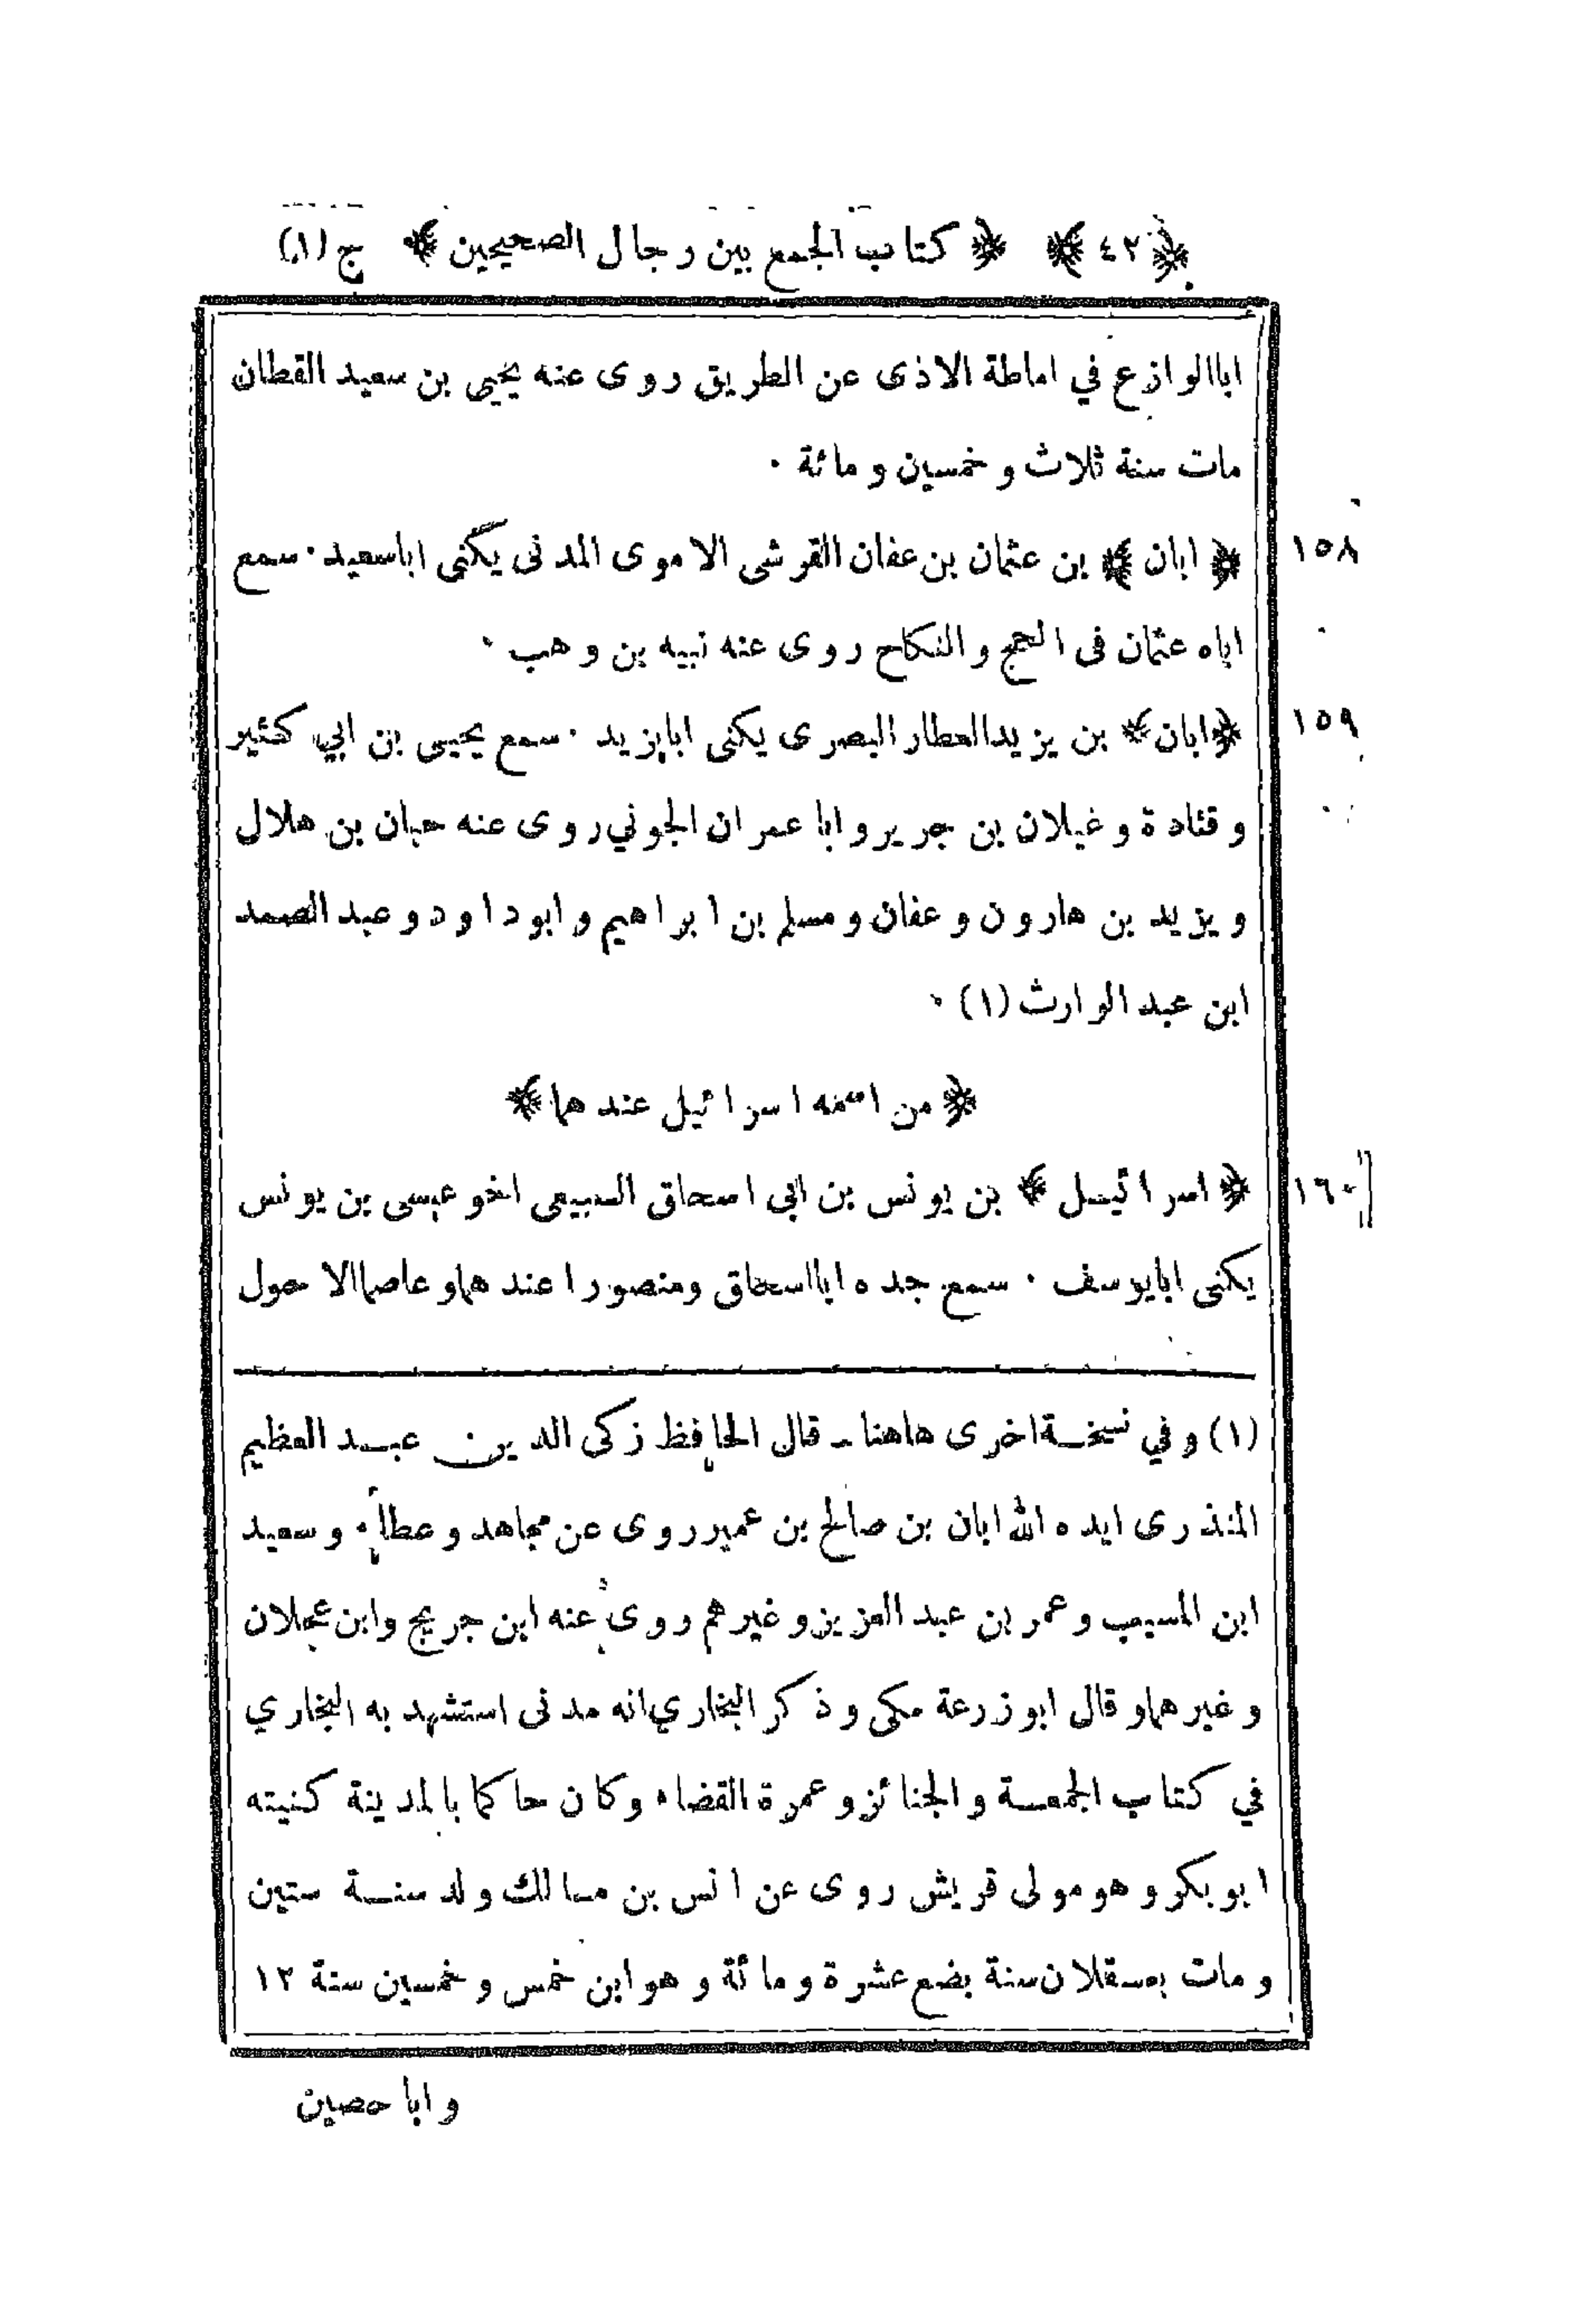 ﴿٤٢﴾ ﴿كتاب الجمع بين رجال الصحيحين﴾ ج (١)
اباالوازع في اماطة الاذى عن الطريق روى عنه يحيى بن سعيد القطان
مات سنة ثلاث و خمسين و مائة ٠
١٥٨ ﴿ ابان ﴾ بن عثمان بن عفان القرشى الاموى المدنى يكنى اباسعيد ٠ سمع
اباه عثمان فى الحج والنكاح روى عنه نبيه بن وهب ٠
١٥٩ ﴿ابان﴾ بن يزيدالعطار البصرى يكنى ابايزيد ٠ سمع يحيى بن ابي كثير
و قتادة و غيلان بن جرير و ابا عمران الجوني روى عنه حبان بن هلال
و يزيد بن هارون و عفان و مسلم بن ابراهيم و ابو داود و عبد الصمد
ابن عبد الوارث (١) ٠
﴿ من اسمه اسرائيل عندهما ﴾
١٦٠ ﴿ اسرائيل ﴾ بن يونس بن ابي اسحاق السبيعى اخو عيسى بن يونس
يكنى ابايوسف ٠ سمع جده ابااسحاق ومنصورا عندهما و عاصما الاحول
(١) و في نسخة اخرى هاهنا ـ قال الحافظ زكى الدين عبد العظيم
المنذرى ايده الله ابان بن صالح بن عمير روى عن مجاهد و عطاء و سعيد
ابن المسيب و عمر بن عبد العزيز و غيرهم روى عنه ابن جريج وابن عجلان
و غيرهما و قال ابو زرعة مكى و ذكر البخاري انه مدنى استشهد به البخاري
في كتاب الجمعة و الجنائز و عمرة القضاء وكان حاكما بالمدينة كنيته
ابو بكر و هو مولى قريش روى عن انس بن مالك ولد سنة ستين
و مات بعسقلان سنة بضع عشرة و مائة و هو ابن خمس و خمسين سنة ١٢
و ابا حصين